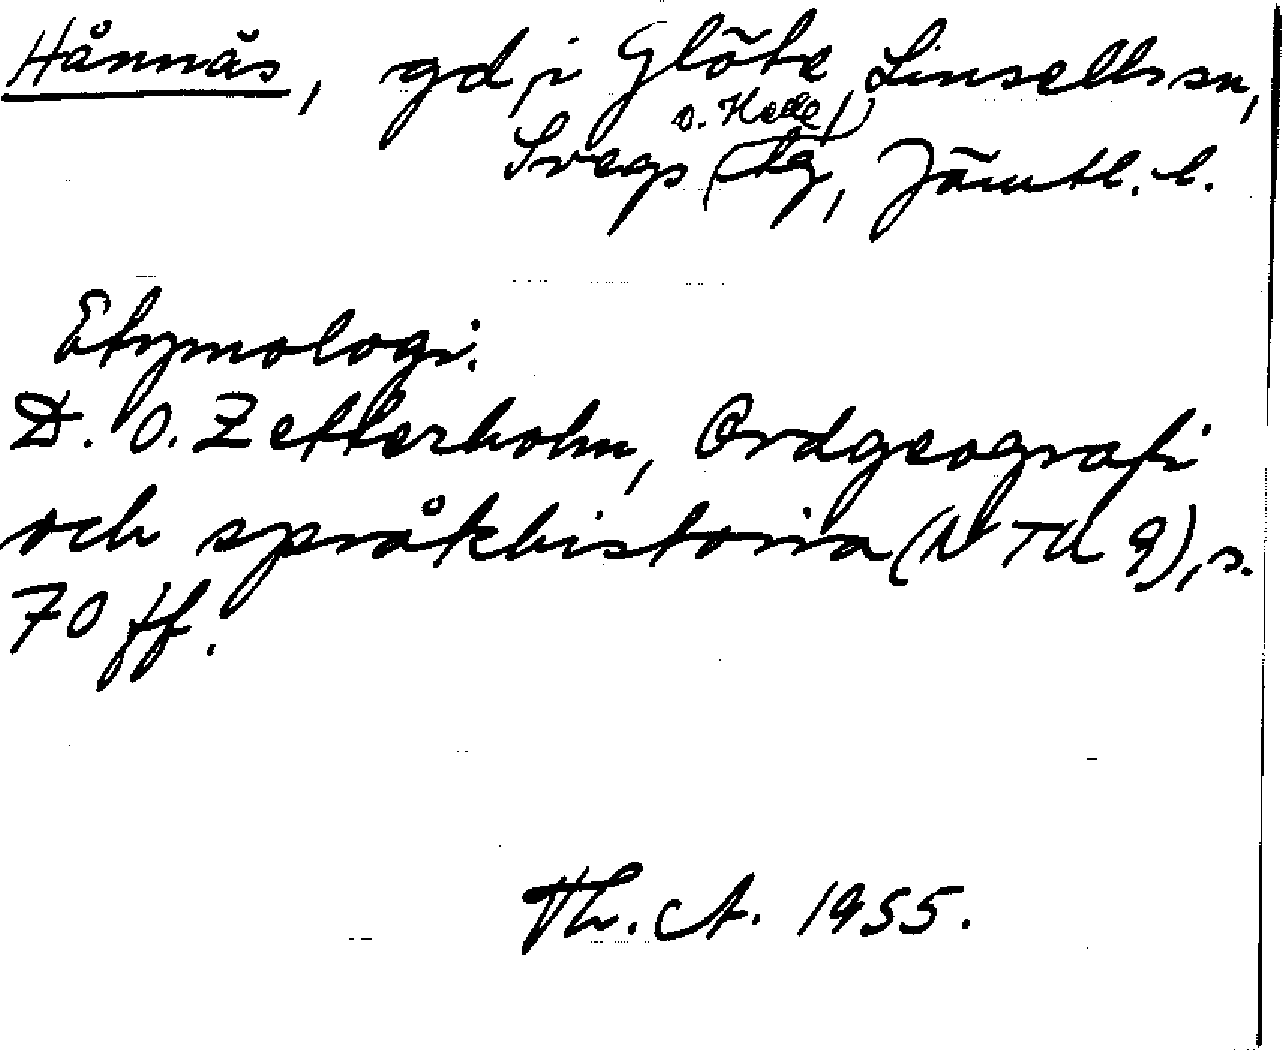 Hånnäs, gd, i Glöte, Linsells sn,
o. Hede
Svegs tg, Jämtl. l.
Etymologi.
D. O. Zetterholm, Ordgeografi
och språkhistoria (NTU 9), s.
70 ff.
Th. A. 1955.